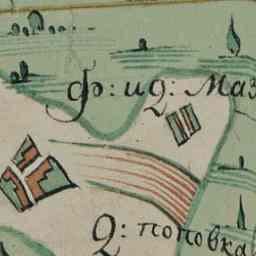 ф: ид: Маз
Д: поповка